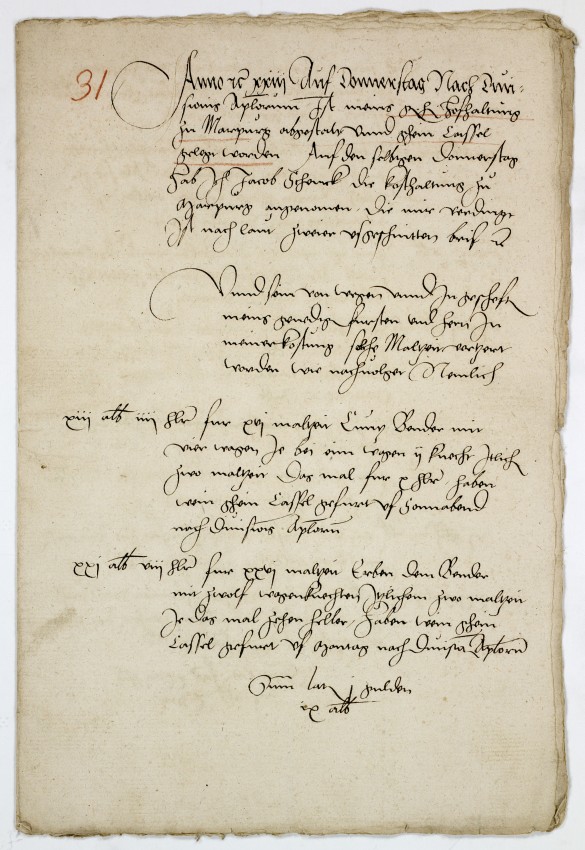 31
Anno etc xxiii Auf Donnerstag Nach Divi-
sionis Aplorum Ist meins gn h Hofhaltung
zu Marpurg abgestalt vnnd ghein Cassel
gelegt worden Auf den selbigen Donnerstag
Hab Ich Jacob Schenck die kosthaltung zu
Marpurg angenomen die mir verdingt
Ist nach laut zweier vßgeschnitten brif etc
Vnnd sein von wegen vnnd In gescheft
meins gnedig fursten vnd hern In
meiner kostung solche Maltzeit vertzert
worden wie nachuolget Nemlich
xiii alb iiii hlr fur xvi maltzeit Curry Bender mit
vier wagen Je bei eim wagen ij knecht Itlich
zwo maltzeit Das mal fur x hlr haben
wein ghein Cassel gefurt vf Sonnabend
nach Diuisionis Aplorum
xxi alb viii hlr fur xxvi maltzeit Erben dem Bender
mit zwolf wagenknechten Itzlichem zwo maltzeit
Je das mal zehen heller haben wein ghein
Cassel gefurt vf Montag nach Diuisio Aplorum
Sum lat j gulden
ix alb